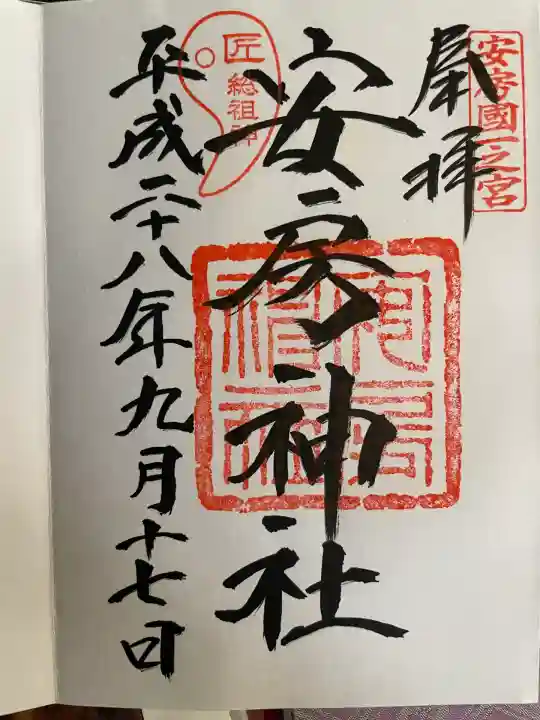 安房國一之宮
奉拝
安房神社
匠
総祖神
平成二十八年九月十七日